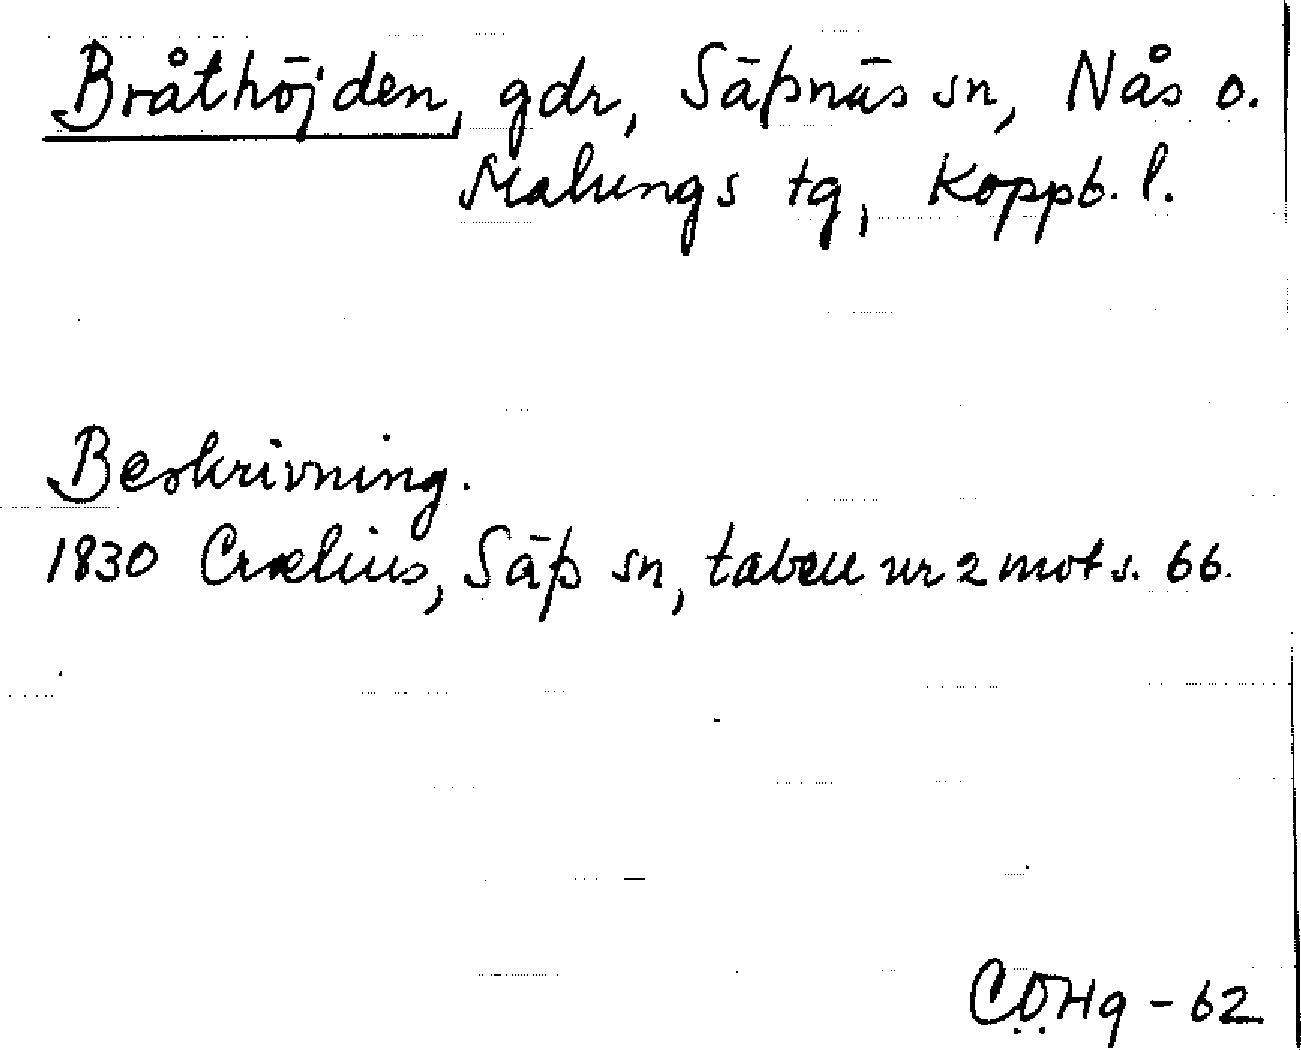 Bråthöjden, gdr, Säfsnäs sn, Nås o.
Malungs tg, Koppb. l.
Beskrivning.
1830 Crælius, Säfs sn, tabell nr 2 mot s. 66.
CÖHg - 62